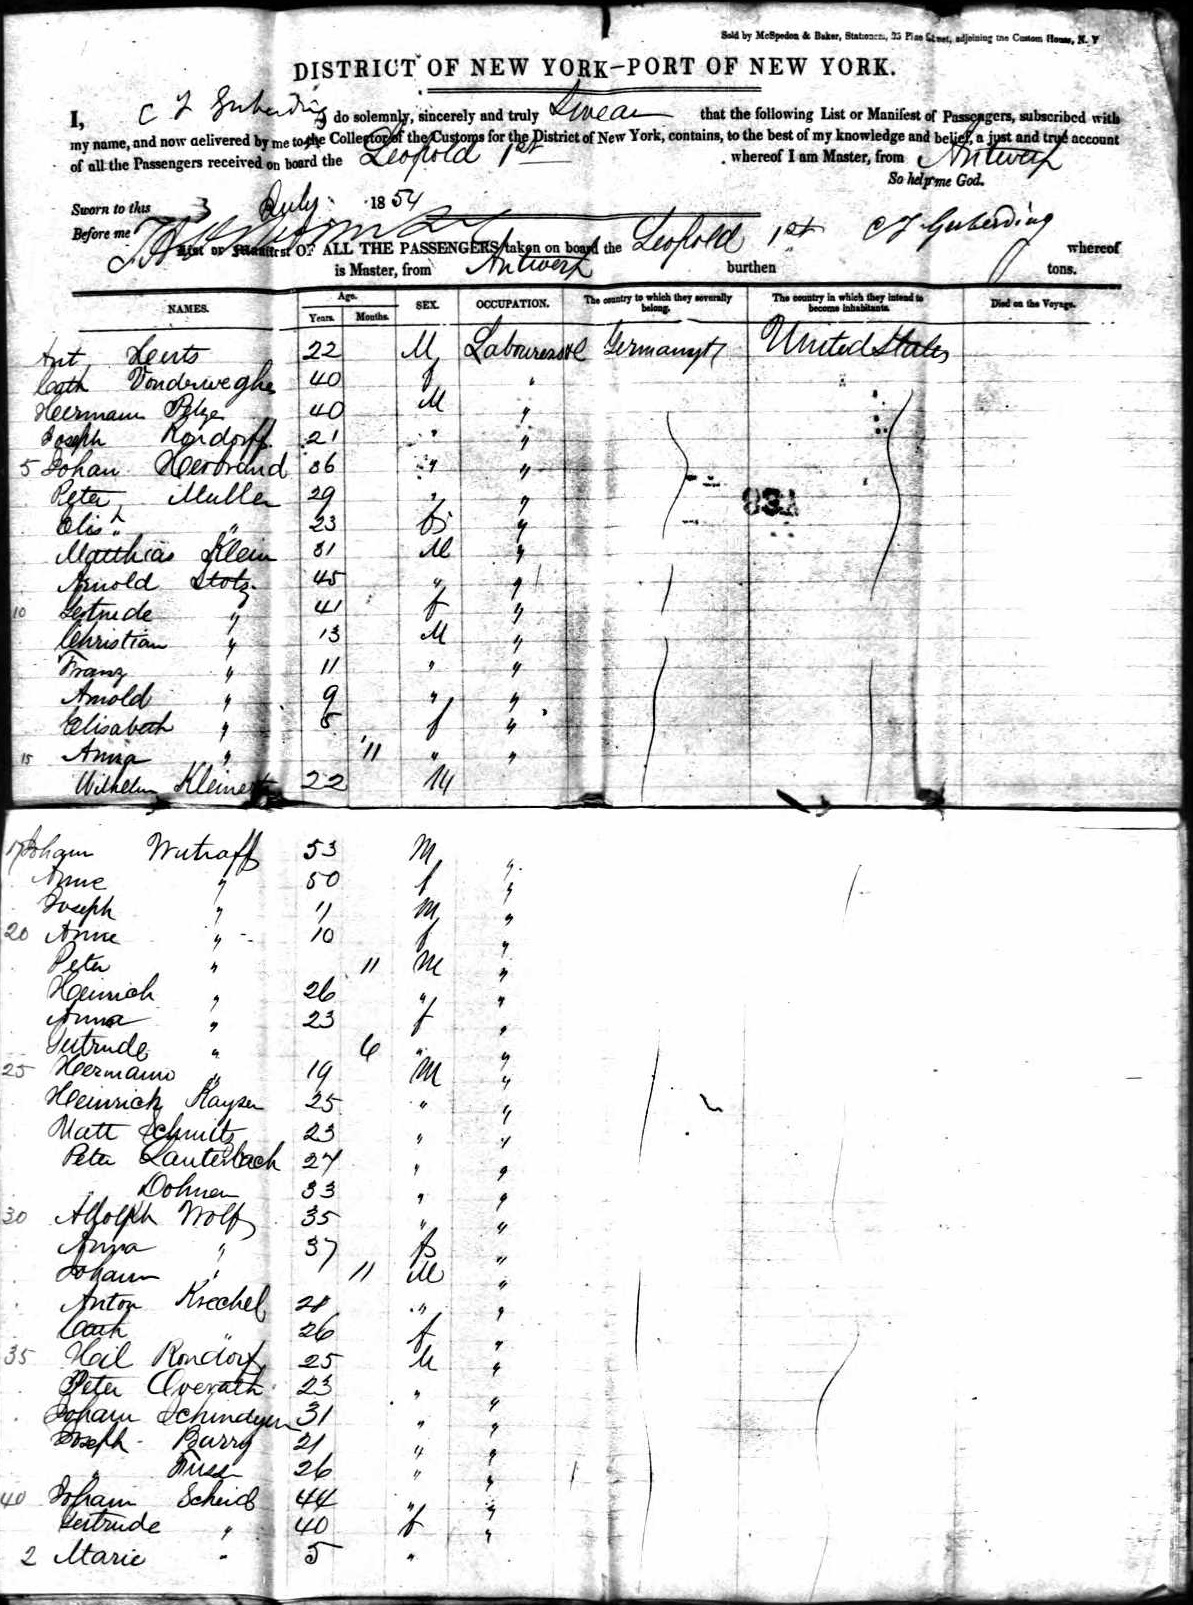 Sold by McSpedon & Baker, Stationers, 25 Pine Street, adjoining the Custom House, N. Y
DISTRICT OF NEW YORK-PORT OF NEW YORK.
I, C F Guberding do solemnly, sincerely and truly Swear that the following List or Manifest of Passengers, subscribed with
my name, and now delivered by me to the Collector of the Customs for the District of New York, contains, to the best of my knowledge and belief, a just and true account
of all the Passengers received on board the Leopold 1st whereof I am Master, from Antwerp
So help me God.
Sworn to this 3 July 1854
Before me
List or Manifest OF ALL THE PASSENGERS taken on board the Leopold 1st C F Guberding whereof
is Master, from Antwerp burthen tons.
NAMES. Age. Years. Months. SEX. OCCUPATION. The country to which they severally belong. The country in which they intend to become inhabitants. Died on the Voyage.
Ant 22 M Labourers Germany United States
Cath Vonderweghe 40 f "
Heermann 40 M "
Joseph Rondorff 21 " "
5 Johan Herbrand 36 " "
Peter Muller 29 " "
Elis " 23 f "
Matthias Klein 31 M "
Arnold Stotz 45 " "
10 Gertrude " 41 f "
Christian " 13 M "
Franz " 11 " "
Arnold " 9 " "
Elisabeth " 5 f "
15 Anna " 11 " "
Wilhelm 22 M
17 Joham 53 M "
Anne " 50 f "
Joseph " 11 M "
20 Anne " 10 f "
Peter " 11 M "
Heinrich " 26 " "
Anna " 23 f "
Gertrude " 6 " "
25 Hermann " 19 M "
Heinrich Kayser 25 " "
Matt Schmitz 23 " "
Peter Lauterbach 27 " "
" Dohmen 33 " "
30 Adolph Wolf 35 " "
Anna " 37 f "
Johann " 11 M "
Anton Krechel 28 " "
Cath " 26 f "
35 Heil Rondorf 25 M "
Peter Overath 23 " "
Joham 31 " "
Joseph Barry 21 " "
" 26 " "
40 Joham Scheid 44 " "
Gertrude " 40 f "
2 Marie " 5 "